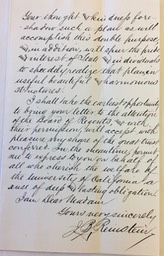 Your thought & kindness fore-
shadow such a plan as will
accomplish this double purpose,
& in addition, will spur the pride
& interest of State & individuals
to steadily realize that plan in
useful beautiful & harmonious
structures.
I shall take the earliest opportunity
to bring your letter to the attention
of the Board of Regents & with
their permission, will accept with
pleasure my share of the great trust
conferred. In the meantime, permit
me to express to you on behalf of
all who cherish the welfare of
the University of California a
sense of deep & lasting obligation
I am Dear Madam
Yours very sincerely,
J. B. Reinstein